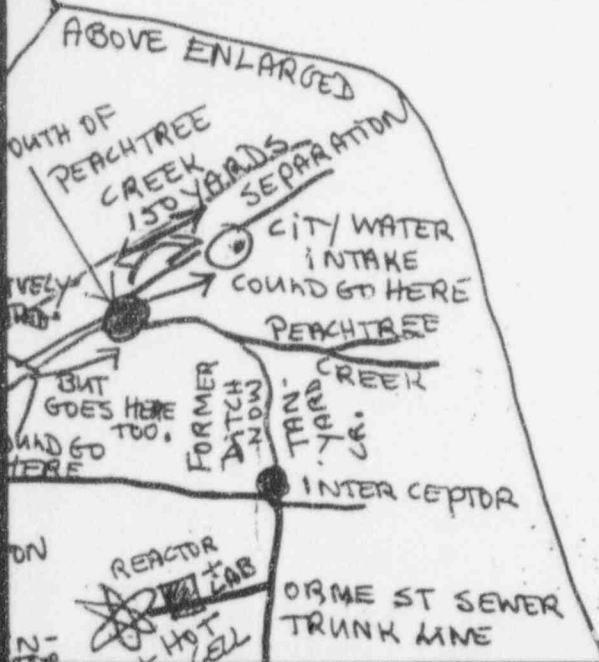 ABOVE ENLARGED
OUTH OF
PEACHTREE
CREEK
150 YARDS
SEPARATION
CITY WATER
INTAKE
COULD GO HERE
IVELY
PEACHTREE
CREEK
BUT
GOES HERE
TOO.
OULD GO
HERE
FORMER
DITCH
NOW
TAN-
YARD
CR.
INTERCEPTOR
ON
REACTOR
+ LAB
HOT
CELL
ORME ST SEWER
TRUNK LINE